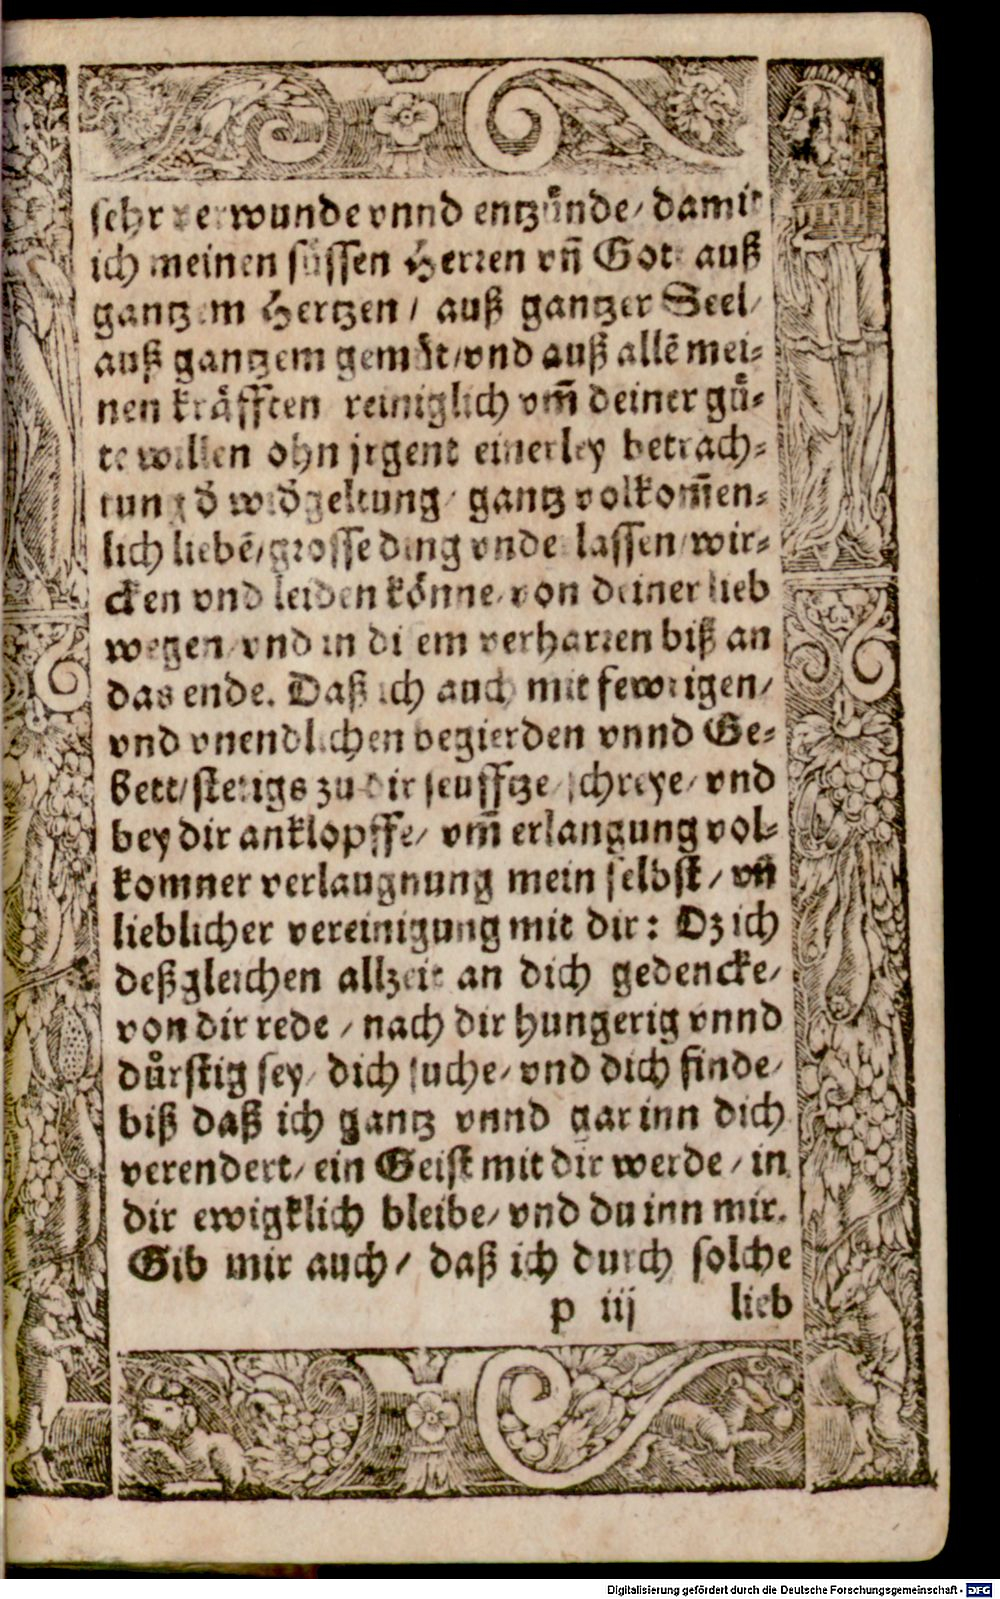 sehr verwunde vnnd entzůnde/ damit
ich meinen süssen Herren vn̄ Gott auß
gantzem Hertzen / auß gantzer Seel/
auß gantzem gemůt/vnd auß allē mei-
nen kräfften reiniglich vm̄ deiner gů-
te willen ohn jrgent einerley betrach-
tung d̕ wid̕geltung/ gantz volkom̄en-
lich liebē/grosse ding vnderlassen/wir-
cken vnd leiden könne/von deiner lieb
wegen/vnd in disem verharren biß an
das ende. Daß ich auch mit fewrigen/
vnd vnendlichen begierden vnnd Ge-
bett/stetigs zu dir seufftze/schreye/ vnd
bey dir anklopffe/ vm̄ erlangung vol-
komner verlaugnung mein selbst/ vn̄
lieblicher vereinigung mit dir: Dz ich
deßgleichen allzeit an dich gedencke/
von dir rede / nach dir hungerig vnnd
důrstig sey/ dich suche/ vnd dich finde/
biß daß ich gantz vnnd gar inn dich
verendert/ ein Geist mit dir werde / in
dir ewigklich bleibe/ vnd du inn mir.
Gib mir auch/ daß ich durch solche
p iij lieb
Digitalisierung gefördert durch die Deutsche Forschungsgemeinschaft - DFG